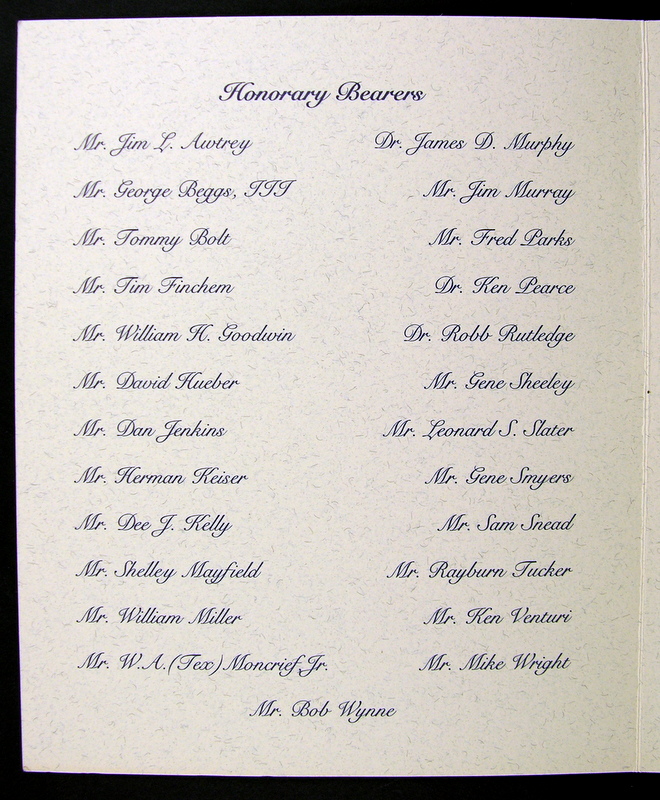 Honorary Bearers
Mr. Jim L. Awtrey
Mr. George Beggs, III
Mr. Tommy Bolt
Mr. Tim Finchem
Mr. William H. Goodwin
Mr. David Hueber
Mr. Dan Jenkins
Mr. Herman Keiser
Mr. Dee J. Kelly
Mr. Shelley Mayfield
Mr. William Miller
Mr. W.A.(Tex)Moncrief,Jr.
Dr. James D. Murphy
Mr. Jim Murray
Mr. Fred Parks
Dr. Ken Pearce
Dr. Robb Rutledge
Mr. Gene Sheeley
Mr. Leonard S. Slater
Mr. Gene Smyers
Mr. Sam Snead
Mr. Rayburn Tucker
Mr. Ken Venturi
Mr. Mike Wright
Mr. Bob Wynne